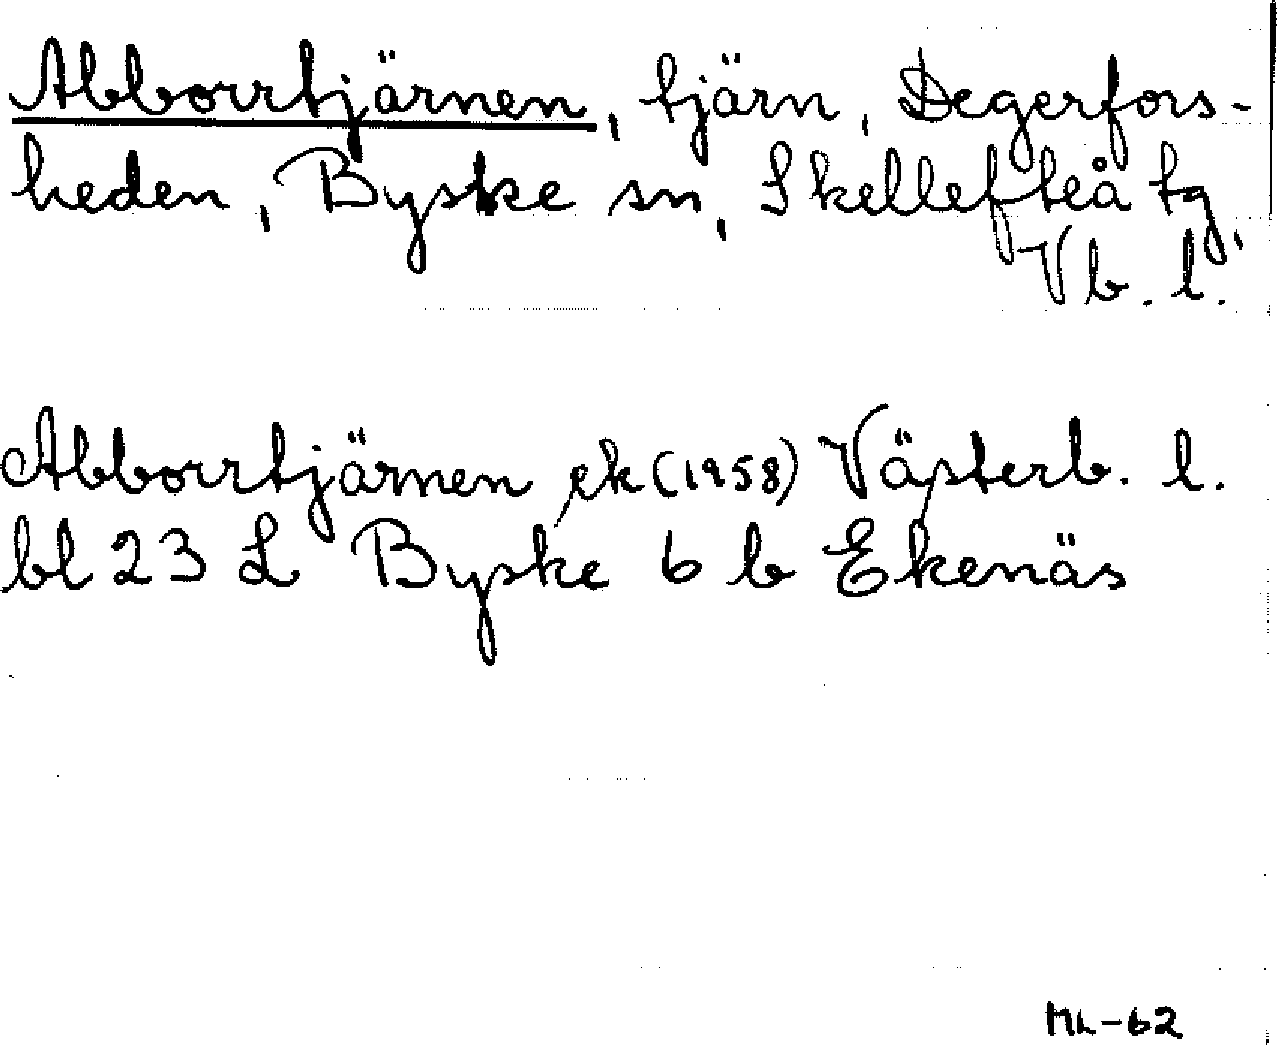 Abborrtjärnen, tjärn, Degerfors-
heden, Byske sn, Skellefteå tg,
Vb. l.
Abborrtjärnen ek (1958) Västerb. l.
bl 23 L Byske 6 b Ekenäs
ML-62